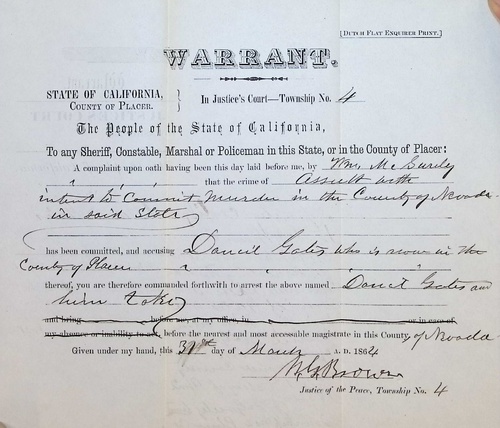 [Dutch Flat Enquirer Print.]
WARRANT.
STATE OF CALIFORNIA,
County of Placer.
} In Justice's Court—Township No. 4
The People of the State of California,
To any Sheriff, Constable, Marshal or Policeman in this State, or in the County of Placer:
A complaint upon oath having been this day laid before me, by Wm. McCurdy
that the crime of Assult with
intent to Commit Murder in the County of Nevada
in said State
has been committed, and accusing Daneil Gates who is now in the
County of Placer
thereof, you are therefore commanded forthwith to arrest the above named Daneil Gates and
him take
and bring before me, at my office, in or in case of
my absence or inability to act, before the nearest and most accessable magistrate in this County of Nevada
Given under my hand, this 31st day of March A. D. 1864
Brown
Justice of the Peace, Township No. 4